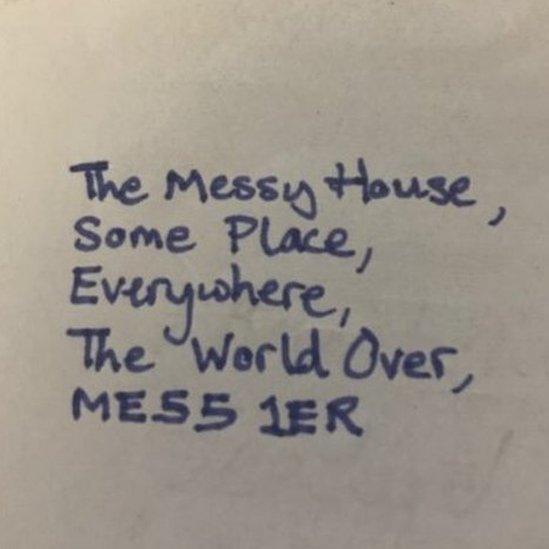 The Messy House,
Some Place,
Everywhere,
The World Over,
MES5 1ER